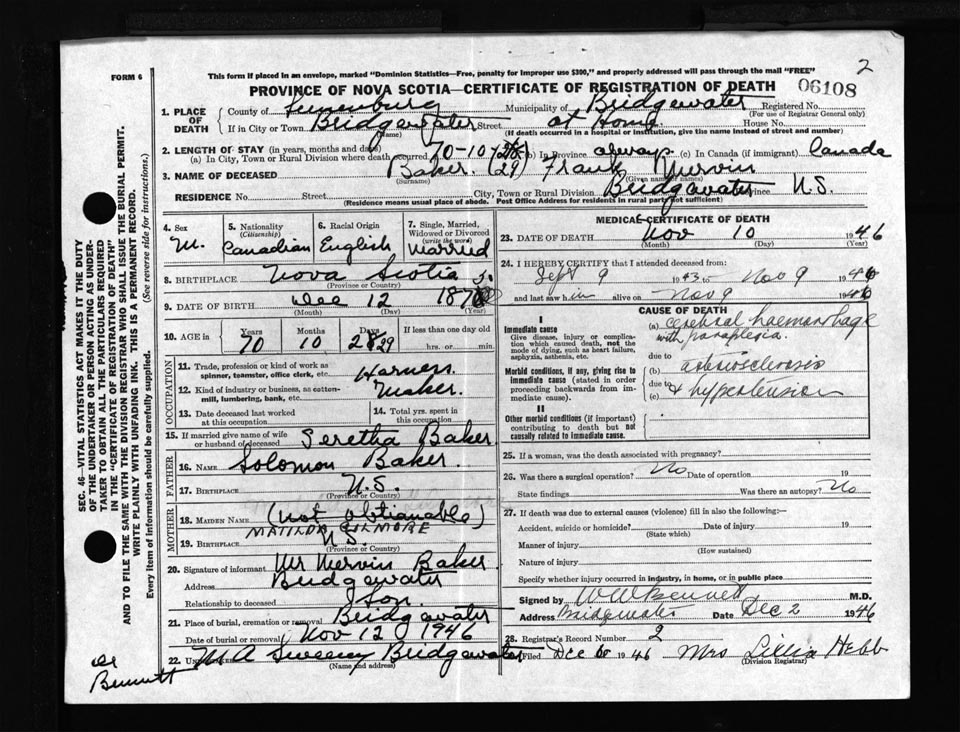 2
FORM 6
This form if placed in an envelope, marked "Dominion Statistics—Free, penalty for improper use $300," and properly addressed will pass through the mail "FREE"
PROVINCE OF NOVA SCOTIA—CERTIFICATE OF REGISTRATION OF DEATH 06108
1. PLACE OF DEATH County of Lunenburg Municipality of Bridgewater Registered No.
(For use of Registrar General only)
If in City or Town Bridgewater Street at Home House No.
(Name) (If death occurred in a hospital or institution, give the name instead of street and number)
2. LENGTH OF STAY (in years, months and days)
(a) In City, Town or Rural Division where death occurred 70-10 (28) (b) in Province always (c) In Canada (if immigrant) Canada
(29)
3. NAME OF DECEASED Baker. Frank Mervin
(Surname) (Given names)
RESIDENCE No. Street City, Town or Rural Division Bridgewater Province N.S.
(Residence means usual place of abode. Post Office Address for residents in rural parts not sufficient)
4. Sex
M.
5. Nationality
(Citizenship)
Canadian
6. Racial Origin
English
7. Single, Married, Widowed or Divorced
(write the word)
Married
8. BIRTHPLACE Nova Scotia
(Province or Country)
9. DATE OF BIRTH Dec 12 187
(Month) (Day) (Year)
10. AGE in Years Months Days If less than one day old
70 10 28 29 hrs. or min.
OCCUPATION
11. Trade, profession or kind of work as spinner, teamster, office clerk, etc. Harness
12. Kind of industry or business, as cotton-mill, lumbering, bank, etc. Maker.
13. Date deceased last worked at this occupation
14. Total yrs. spent in this occupation
15. If married give name of wife or husband of deceased Seretha Baker
FATHER
16. NAME Solomon Baker.
17. BIRTHPLACE N.S.
(Province or Country)
MOTHER
18. MAIDEN NAME (not obtianable)
MATILDA GILMORE
19. BIRTHPLACE N.S.
(Province or Country)
20. Signature of informant Mr Mervin Baker
Address Bridgewater
Relationship to deceased Son.
21. Place of burial, cremation or removal Bridgewater
Date of burial or removal Nov 12 1946
22. Undertaker M A Sweeny Bridgewater
(Name and address)
Dr
Bennett
MEDICAL CERTIFICATE OF DEATH
23. DATE OF DEATH Nov 10 1946
(Month) (Day) (Year)
24. I HEREBY CERTIFY that I attended deceased from:
Sept 9 1943 to Nov 9 1946
and last saw him alive on Nov 9 1946
CAUSE OF DEATH
I
Immediate cause
Give disease, injury or complication which caused death, not the mode of dying, such as heart failure, asphyxia, asthenia, etc.
(a) cerebral haemorrhage
with paraplegia.
due to
Morbid conditions, if any, giving rise to immediate cause (stated in order proceeding backwards from immediate cause).
(b) arteriosclerosis
due to
(c) & hypertension
II
Other morbid conditions (if important) contributing to death but not causally related to immediate cause.
25. If a woman, was the death associated with pregnancy?
26. Was there a surgical operation? No Date of operation 19
State findings Was there an autopsy? No
27. If death was due to external causes (violence) fill in also the following:—
Accident, suicide or homicide? Date of injury 19
(State which)
Manner of injury
(How sustained)
Nature of injury
Specify whether injury occurred in industry, in home, or in public place
Signed by W W Bennett M.D.
Address Bridgewater Date Dec 2 1946
28. Registrar's Record Number 2
Filed Dec 6 1946 Mrs Lillia Hebb
(Division Registrar)
SEC. 46—VITAL STATISTICS ACT MAKES IT THE DUTY
OF THE UNDERTAKER OR PERSON ACTING AS UNDER-
TAKER TO OBTAIN ALL THE PARTICULARS REQUIRED
IN THE "CERTIFICATE OF REGISTRATION OF DEATH"
AND TO FILE THE SAME WITH THE DIVISION REGISTRAR WHO SHALL ISSUE THE BURIAL PERMIT.
WRITE PLAINLY WITH UNFADING INK. THIS IS A PERMANENT RECORD.
Every item of information should be carefully supplied. (See reverse side for instructions.)